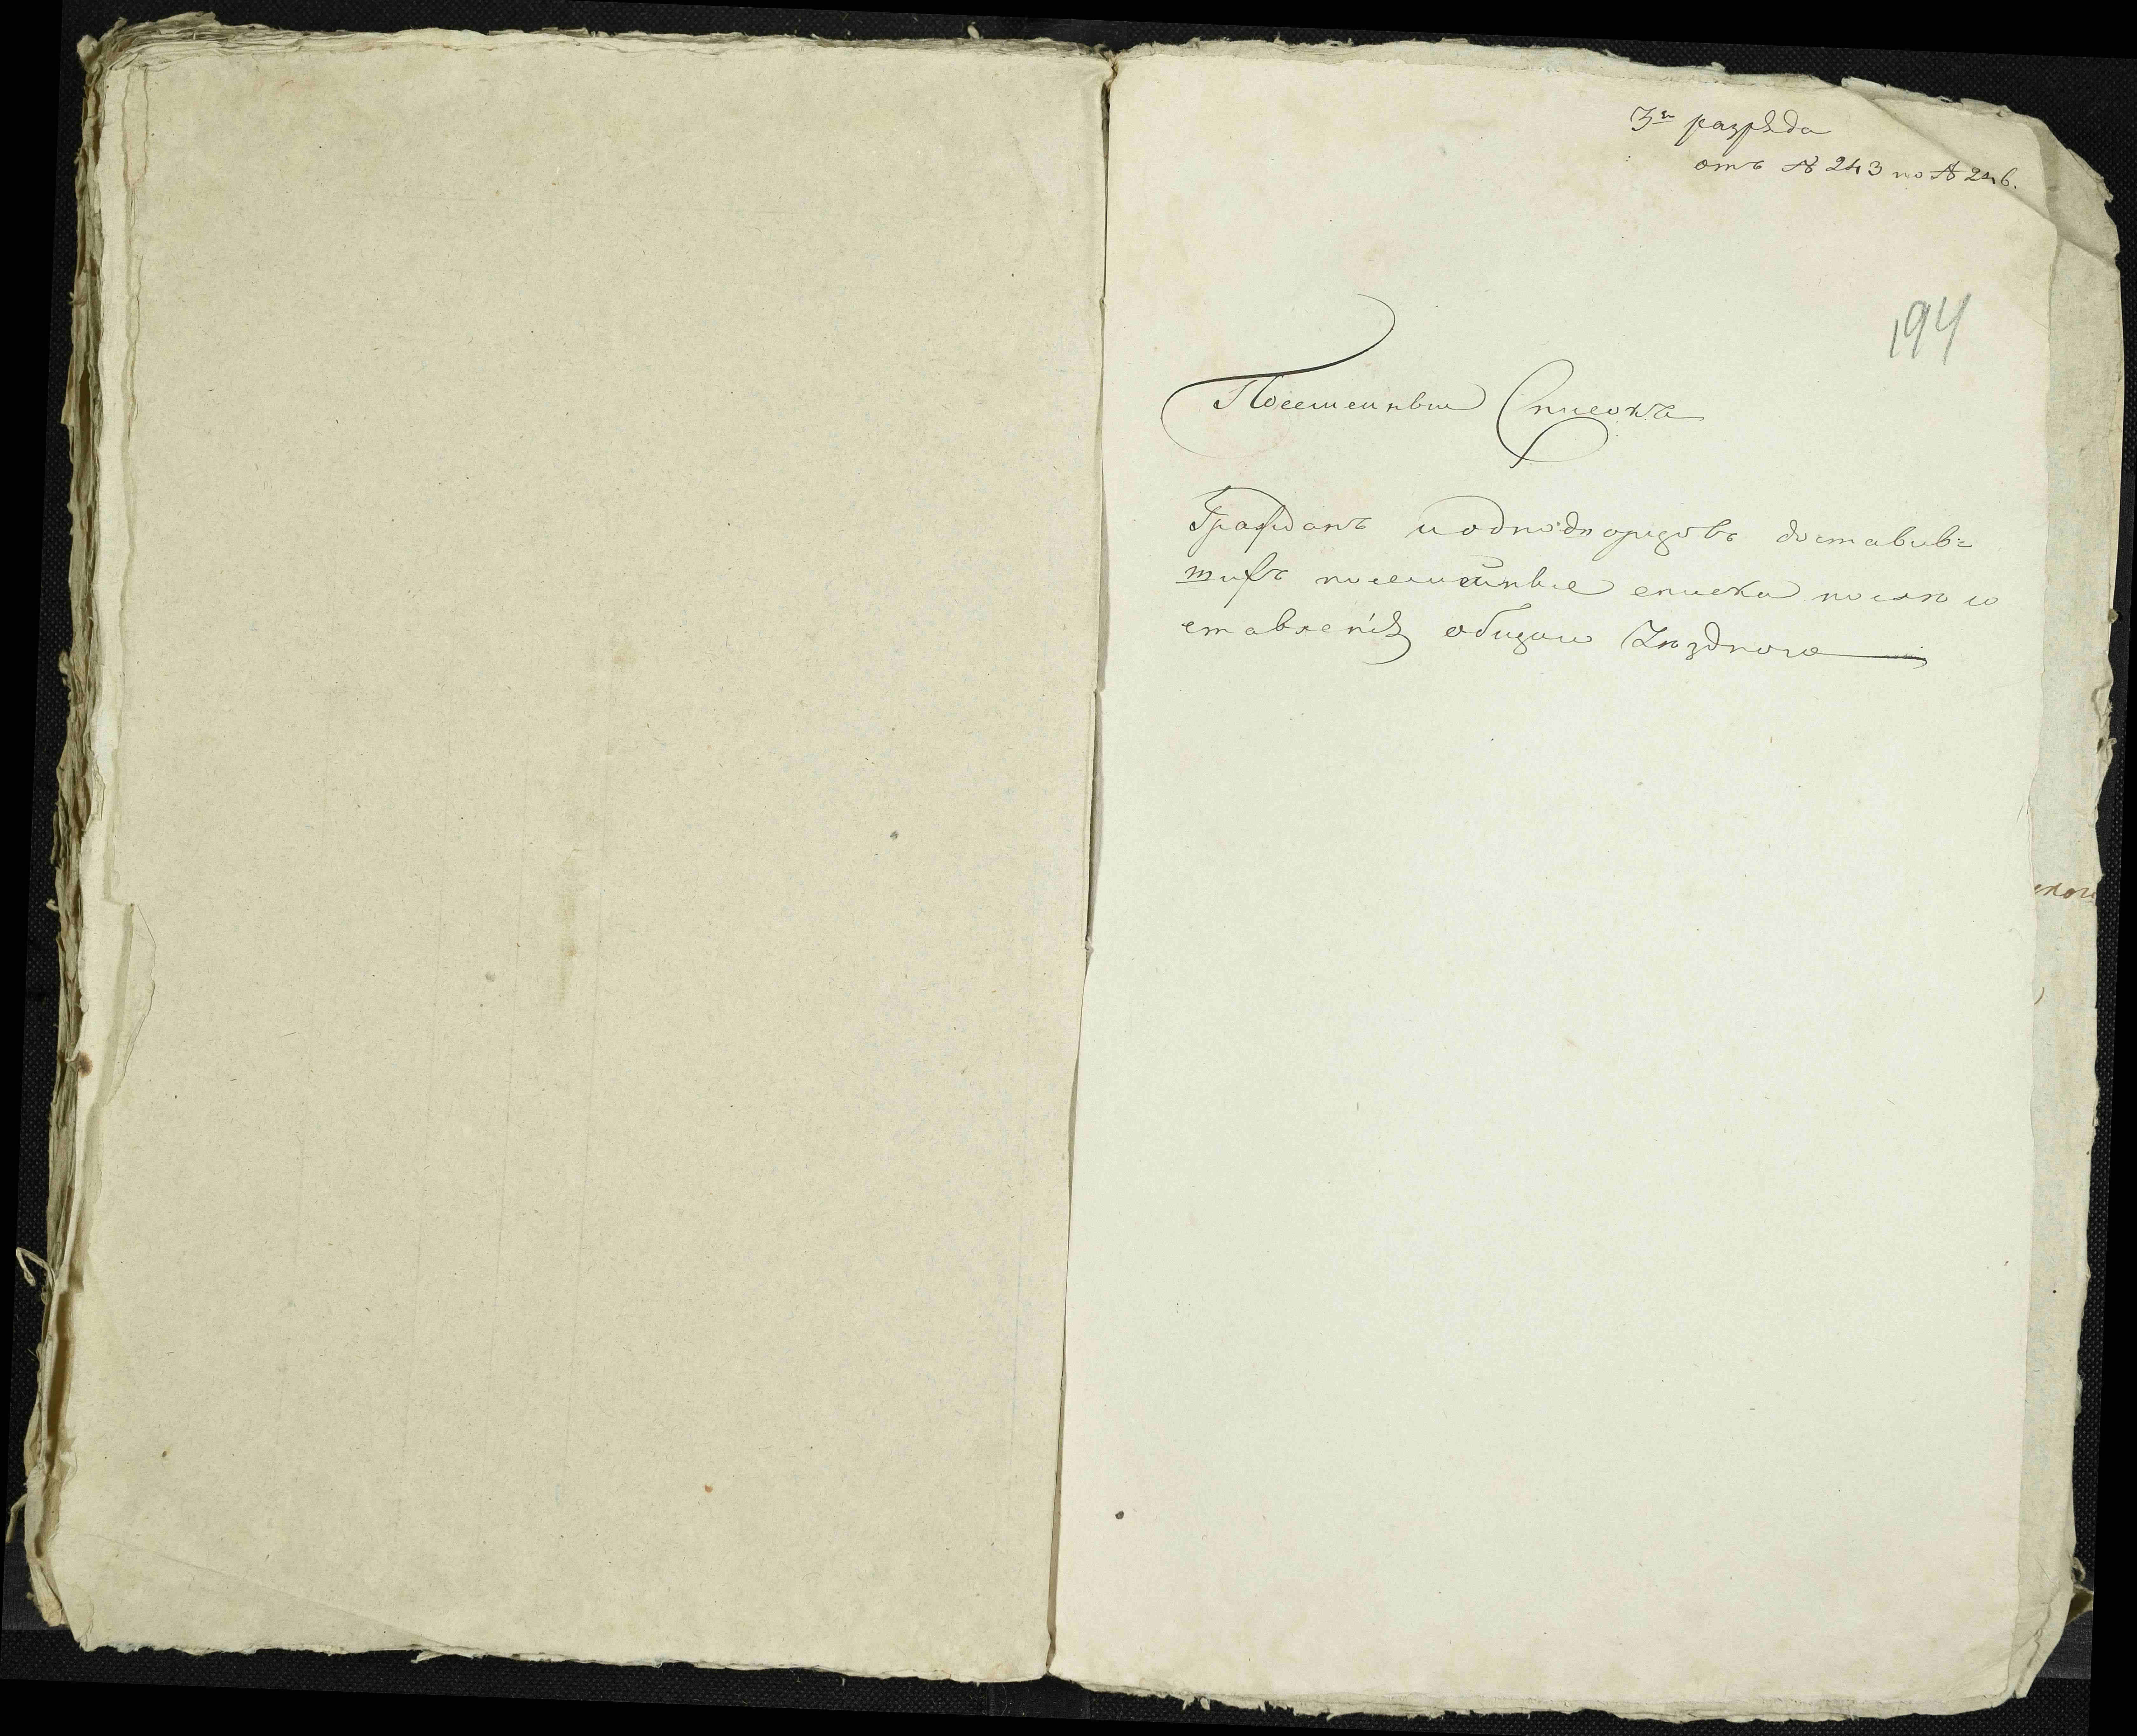 3го разряда
отъ № 243 по № 246.
194
Посемейный Списокъ
Гражданъ и однодворцовъ доставив=
шихъ посемейные списки после со
ставленія общаго Уѣзднаго